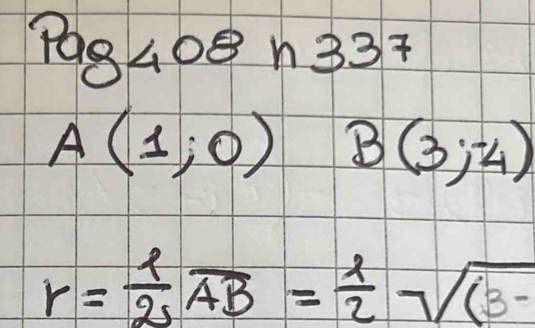 Pag 408 n 337
A (1;0) B (3;-4)
r = 1/2 AB = 1/2 √(3-